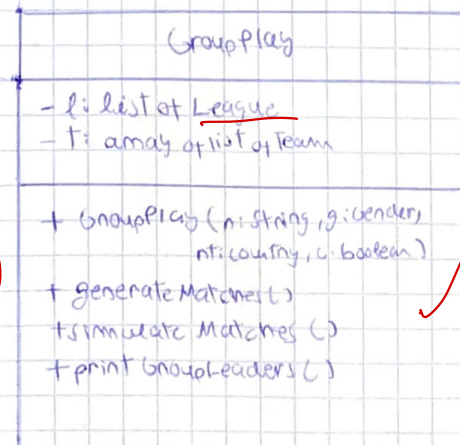 GroupPlay
- l: list of League
- T: array of list of Team
+ GroupPlay(n:string, g:Gender,
nt:country, c:boolean)
+ generateMatches()
+simulate Matches ()
+printGroupLeaders()